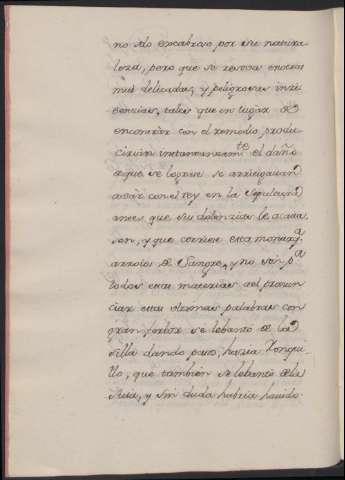 no solo escabroso por su natura
leza, pero que se rozava en otras
mui delicadas, y peligrosas inteli
gencias, tales que en lugar de
encontrar con el remedio, produ
cirian instantaneam.te el daño
que se logre se arriesgavan
a dar con el rey en la Sepultura
antes que su dolencia le acava
sen, y que corriese esta monarq.a
arroios de Sangre, y no son p.a
todos estas materias, al pronun
ciar estas ultimas palabras con
gran furor se lebantó de la
silla dando paso, hacia Ronqui
llo, que tambien se lebantó de la
suia, y sin duda habria havido